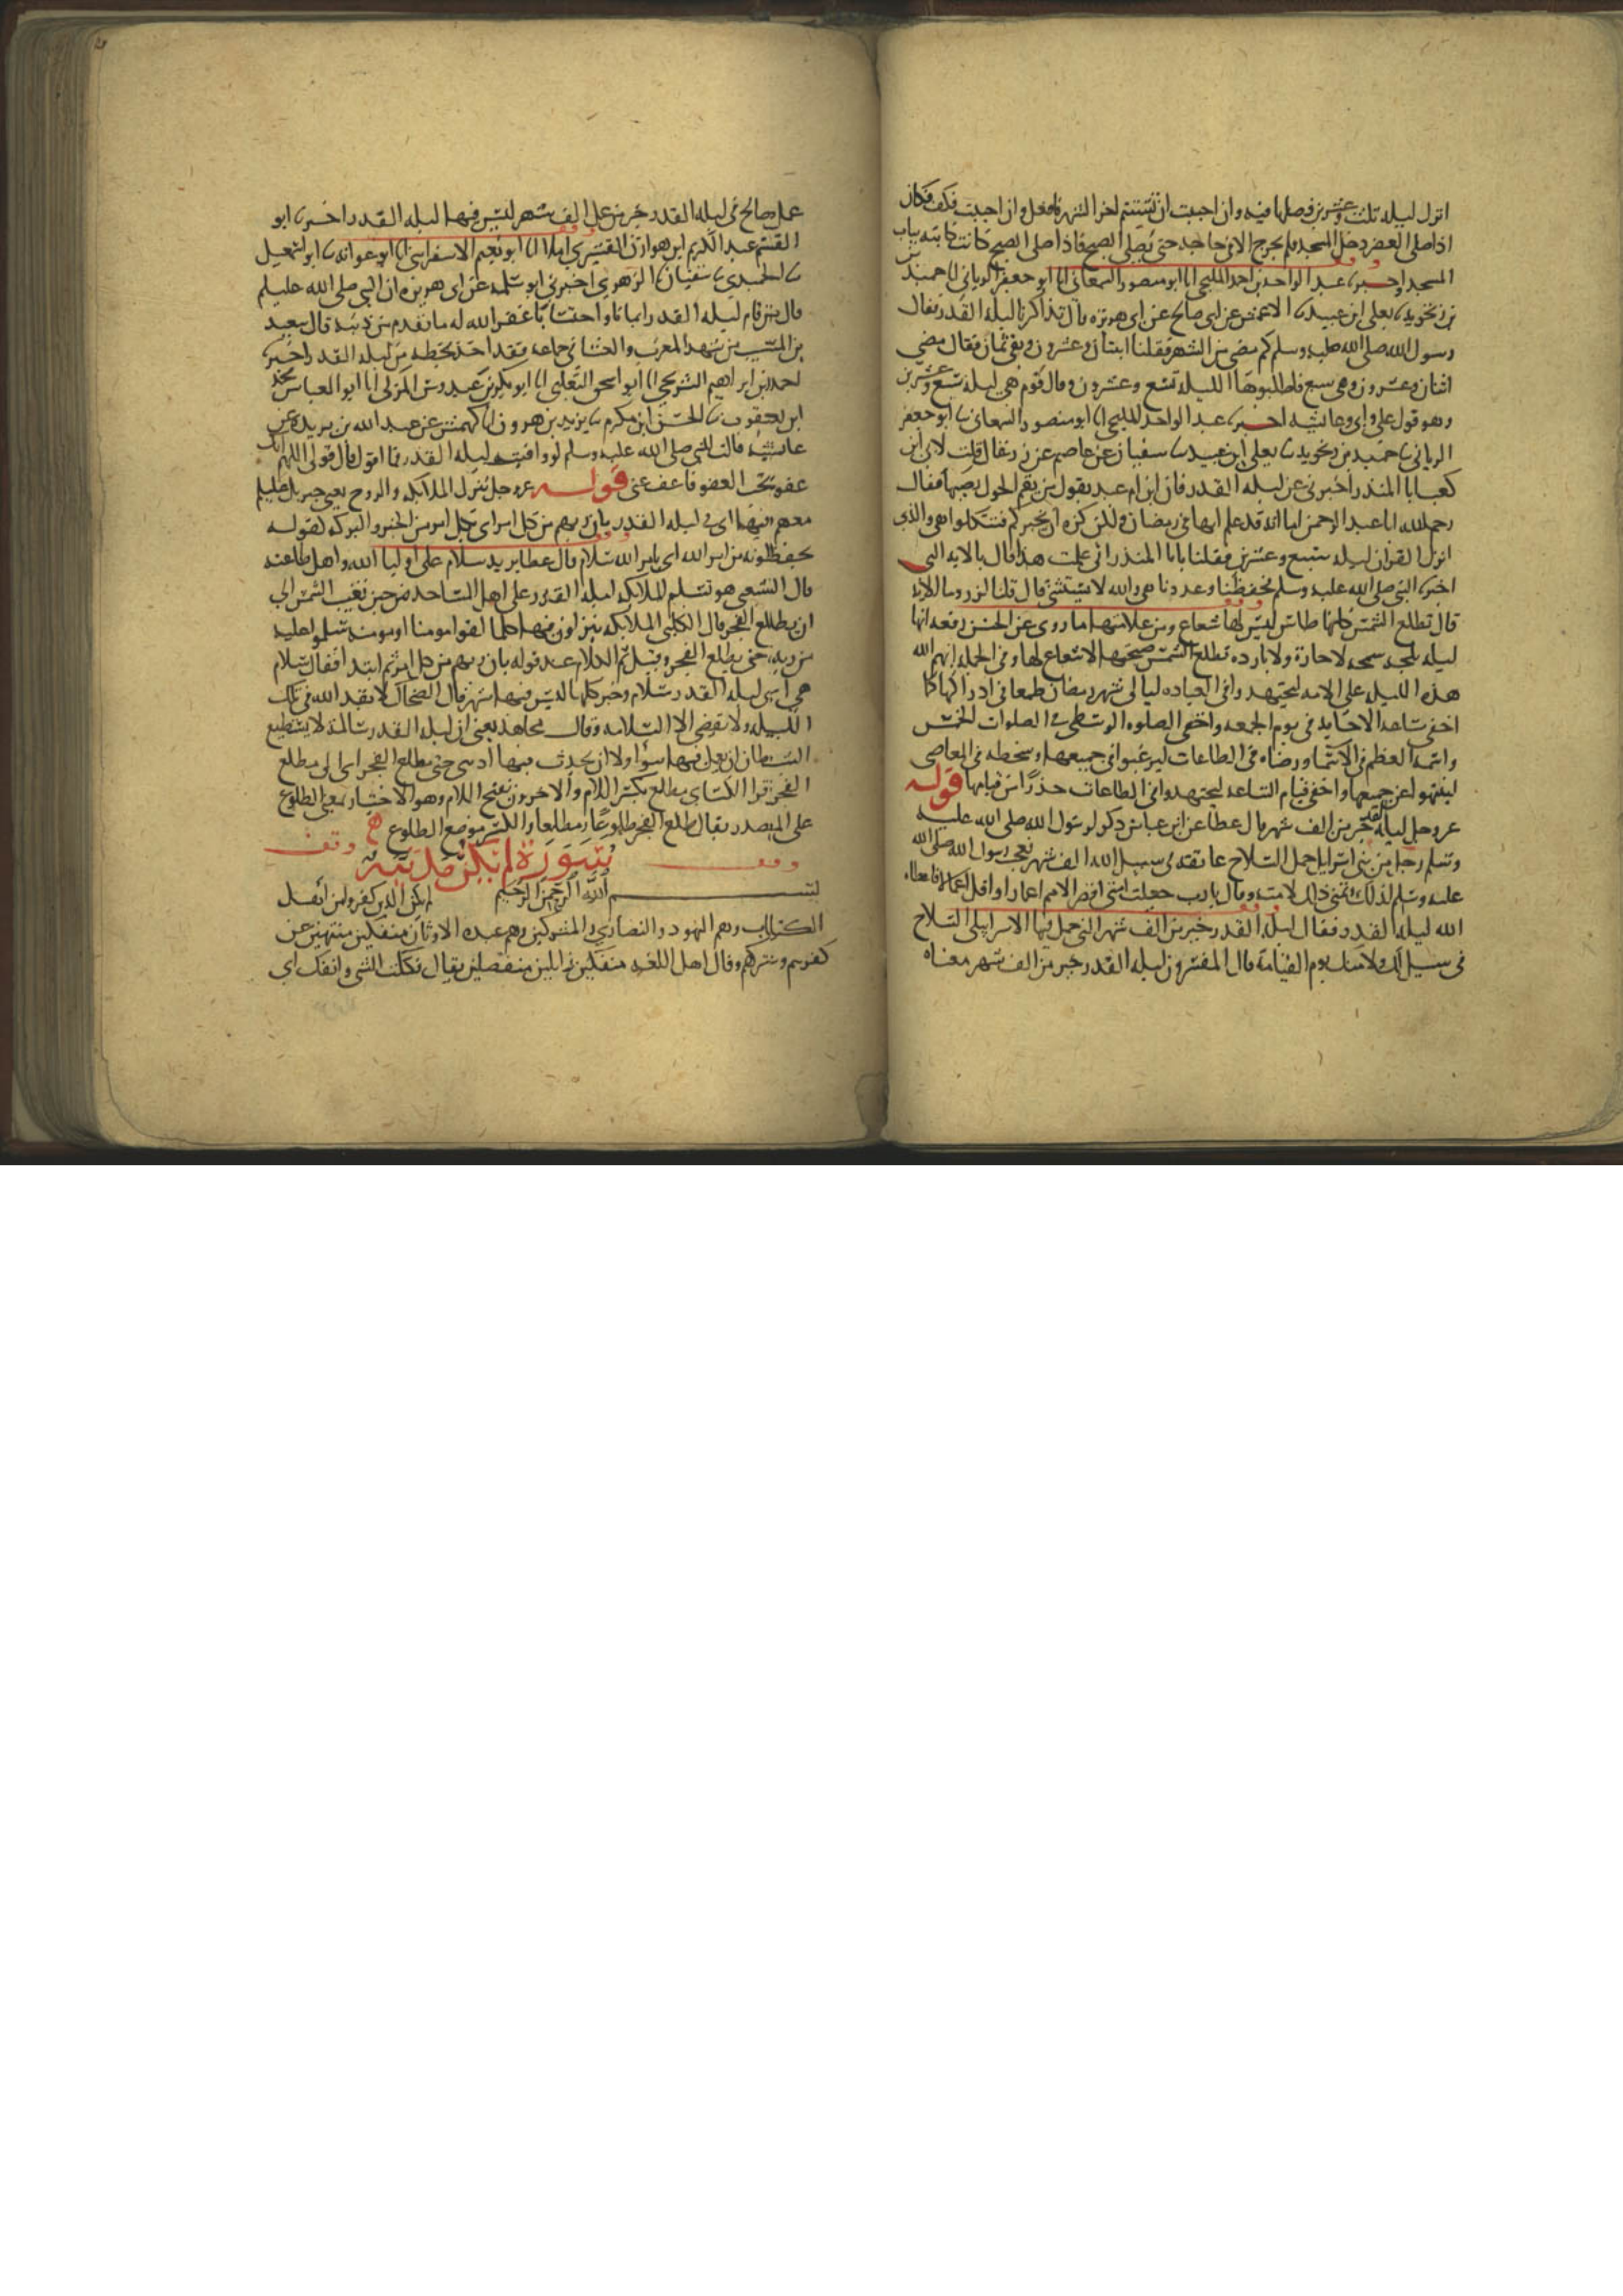 انزل ليلة ثلث وعشرين فصلها فيه وان احببت ان تستتم اخر الشهر فافعل وان احببت فكف فكان
اذا صلى العصر دخل المسجد فلم يخرج الا في حاجة حتى يصلي الصبح فاذا صلى الصبح كانت دابته بباب
المسجد واخبرنا عبد الواحد بن احمد المليحي انا ابو منصور السمعاني انا ابو جعفر الرياني نا حميد
بن زنجويه نا يعلى ابن عبيد نا الاعمش عن ابي صالح عن ابي هريره قال تذاكرنا ليلة القدر فقال
رسول الله صلى الله عليه وسلم كم مضى من الشهر فقلنا اثنان وعشرون وبقي ثمان فقال مضى
اثنان وعشرون وبقي سبع فاطلبوها الليلة تسع وعشرون وقال قوم هي ليلة سبع وعشرين
وهو قول علي وابي وعائشه اخبرنا عبد الواحد المليحي انا ابو منصور السمعاني نا ابو جعفر
الرياني نا حميد بن زنجويه نا يعلى ابن عبيد نا سفيان عن عاصم عن زر قال قلت لابي ابن
كعب ابا المنذر اخبرني عن ليلة القدر فان ابن ام عبد يقول من يقم الحول يصبها فقال
رحم الله ابا عبد الرحمن اما انه قد علم انها في رمضان ولكن كره ان يخبركم فتتكلوا هي والذي
انزل القران ليلة سبع وعشرين فقلنا يا ابا المنذر انى علمت هذا قال بالاية التي
اخبرنا النبي صلى الله عليه وسلم فحفظنا وعددنا هي والله لا يستثني قال قلنا لزر وما الاية
قال تطلع الشمس كانها طاس ليس لها شعاع ومن علامتها ما روي عن الحسن رفعه انها
ليلة بلجة سمحة لا حارة ولا بارده تطلع الشمس صبيحتها لا شعاع لها وفي الجملة ابهم الله
هذه الليلة على الامه ليجتهدوا في العباده ليالي شهر رمضان طمعا في ادراكها كما
اخفى ساعة الاجابة في يوم الجمعه واخفى الصلوه الوسطى في الصلوات الخمس
واسمه الاعظم في الاسما ورضاه في الطاعات ليرغبوا في جميعها وسخطه في المعاصي
لينتهوا عن جميعها واخفى قيام الساعة ليجتهدوا في الطاعات حذرا من قيامها قوله
عز وجل ليلة القدر خير من الف شهر قال عطا عن ابن عباس ذكر لرسول الله صلى الله عليه
وسلم رجل من بني اسرايل حمل السلاح على عاتقه في سبيل الله الف شهر فعجب رسول الله صلى الله
عليه وسلم لذلك وتمنى ذلك لامته وقال يا رب جعلت امتي اقصر الامم اعمارا واقلها اعمالا فاعطاه
الله ليلة القدر فقال ليلة القدر خير من الف شهر التي حمل فيها الاسرايلي السلاح
في سبيل الله لك ولامتك يوم القيامة قال المفسرون ليلة القدر خير من الف شهر معناه
عمل صالح في ليلة القدر خير من عمل الف شهر ليس فيها ليلة القدر اخبرنا ابو
القسم عبد الكريم ابن هوازن القشيري املا انا ابو نعيم الاسفرايني انا ابو عوانه نا ابو اسمعيل
نا الحميدي نا سفيان نا الزهري اخبرني ابو سلمة عن ابي هريره ان النبي صلى الله عليه وسلم
قال من قام ليلة القدر ايمانا واحتسابا غفر الله له ما تقدم من ذنبه قال سعيد
بن المسيب من شهد المغرب والعشا في جماعة فقد اخذ بحظه من ليلة القدر اخبرنا
احمد بن ابراهيم الشريحي انا ابو اسحق الثعلبي انا ابو بكر بن عبدوس المزكي انا ابو العباس محمد
ابن يعقوب نا الحسن ابن مكرم نا يزيد بن هرون انا كهمس عن عبد الله بن بريدة عن
عائشة قالت للنبي صلى الله عليه وسلم لو وافيت ليلة القدر فما اقول قال قولي اللهم انك
عفو تحب العفو فاعف عني قوله عز وجل تنزل الملائكة والروح يعني جبريل عليه السلام
معهم فيها اي في ليلة القدر باذن ربهم من كل امر اي بكل امر من الخير والبركة لقوله
يحفظونه من امر الله اي بامر الله سلام قال عطا يريد سلام على اوليا الله واهل طاعته
قال الشعبي هو تسليم الملائكه ليلة القدر على اهل المساجد من حين تغيب الشمس الى
ان يطلع الفجر قال الكلبي الملائكه ينزلون فيها كلما لقوا مومنا او مومنة سلموا عليه
من ربه حتى يطلع الفجر وقيل تم الكلام عند قوله باذن ربهم من كل امر ثم ابتدا فقال سلام
هي اي ليلة القدر سلام وخير كلها ليس فيها شر قال الضحاك لا يقدر الله في تلك
الليلة ولا يقضي الا السلامة وقال مجاهد يعني ان ليلة القدر سالمة لا يستطيع
الشيطان ان يعمل فيها سوا ولا ان يحدث فيها اذى حتى مطلع الفجر اي الى مطلع
الفجر قرا الكساي مطلع بكسر اللام والاخرون بفتح اللام وهو الاختيار بمعنى الطلوع
على المصدر يقال طلع الفجر طلوعا ومطلعا والكسر موضع الطلوع
وقف سورة لم يكن مدنية وقف
بسم الله الرحمن الرحيم لم يكن الذين كفروا من اهل
الكتاب وهم اليهود والنصارى والمشركين وهم عبدة الاوثان منفكين منتهين عن
كفرهم وشركهم وقال اهل اللغه منفكين زايلين منفصلين يقال فككت الشي وانفك اي